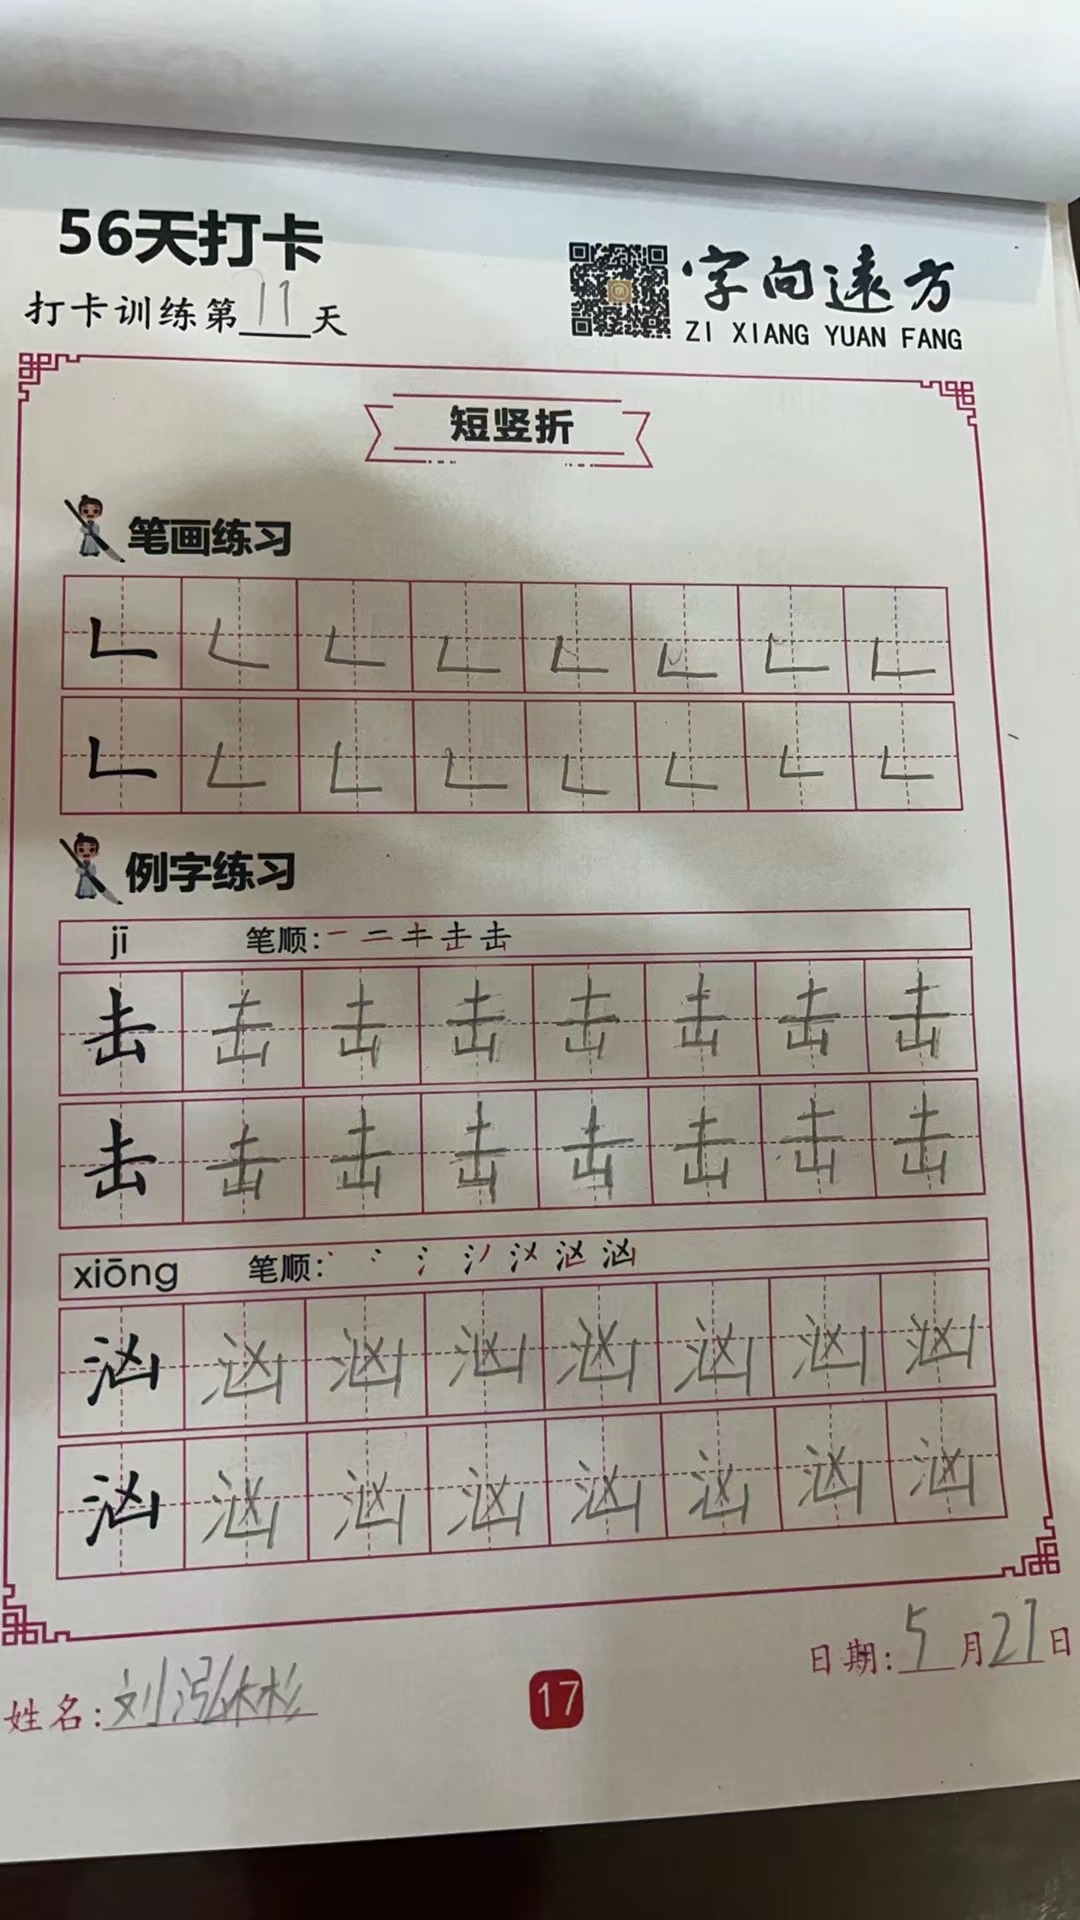 56天打卡
打卡训练第11天
字向远方
ZI XIANG YUAN FANG
短竖折
笔画练习
例字练习
jī 笔顺:
击 击 击 击 击 击 击 击
击 击 击 击 击 击 击 击
xiōng 笔顺:
汹 汹 汹 汹 汹 汹 汹 汹
汹 汹 汹 汹 汹 汹 汹 汹
日期:5月21日
姓名:刘泓彬
17